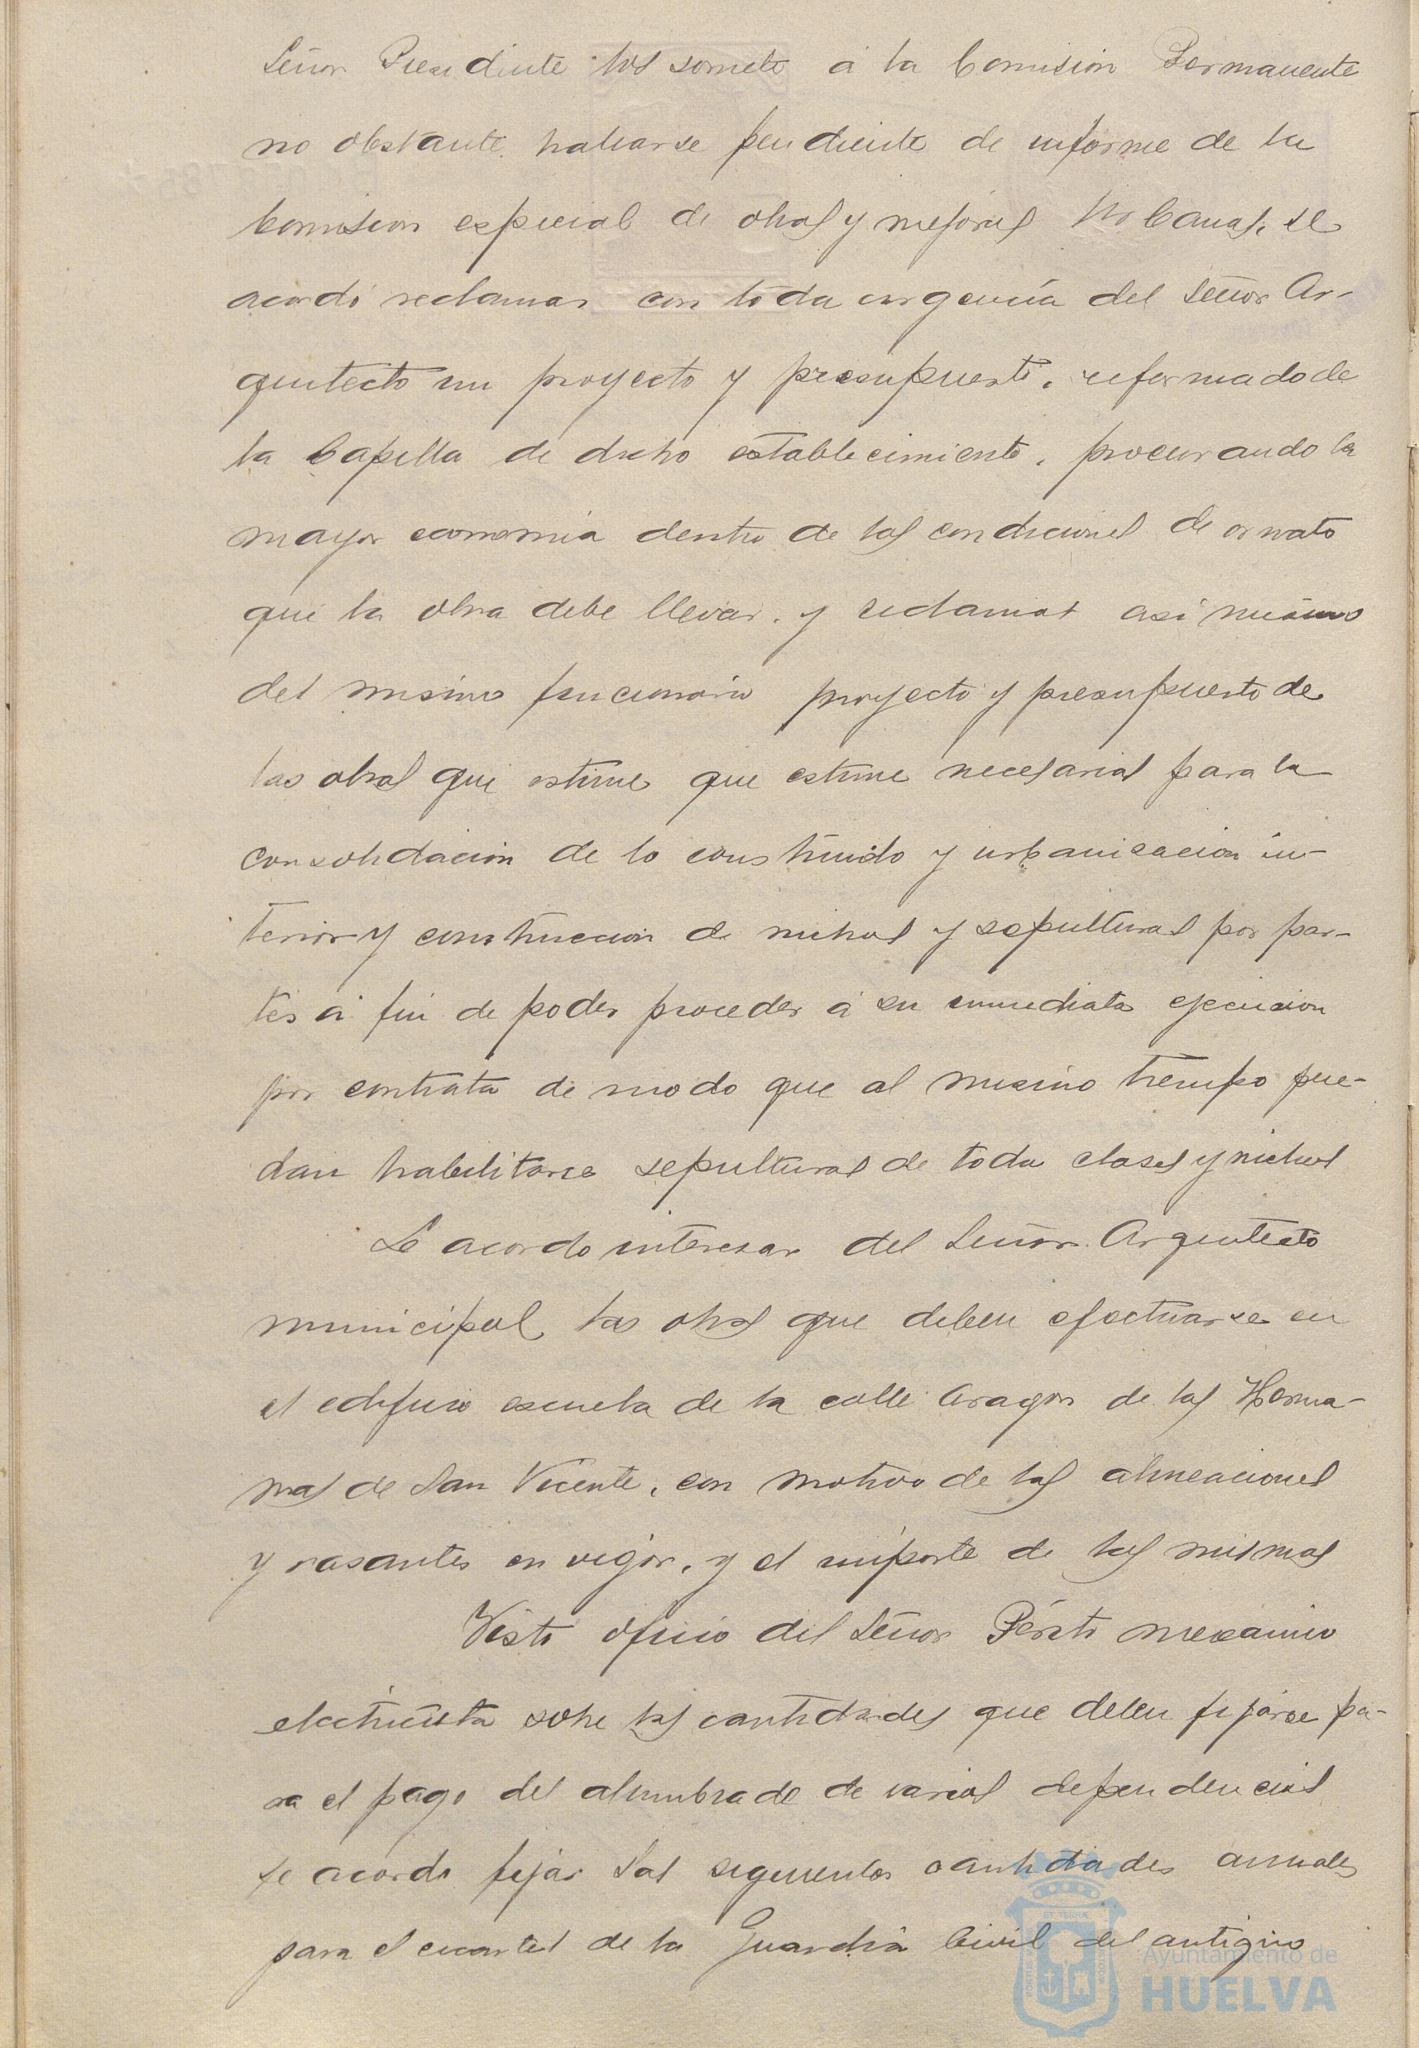 Señor Presidente los somete á la Comisión Permanente
no obstante hallarse pendiente de informe de la
Comision especial de obras y mejoras Urbanas, se
acordó reclamar con toda urgencia del Señor Ar-
quitecto un proyecto y presupuesto, reformado de
la Capilla de dicho establecimiento, procurando la
mayor economia dentro de las condiciones de ornato
que la obra debe llevar, y reclamar asi mismo
del mismo funcionario proyecto y presupuesto de
las obras que estime que estime necesarias para la
consolidacion de lo construido y urbanizacion in-
terior y construccion de nichos y sepulturas por par-
tes á fin de poder proceder á su inmediata ejecucion
por contrata de modo que al mismo tiempo pue-
dan habilitarse sepulturas de toda clases y nichos
Se acordo interesar del Señor Arquitecto
municipal las obras que deben efectuarse en
el edificio escuela de la calle Aragon de las Herma-
nas de San Vicente, con motivo de las alineaciones
y rasantes en vigor, y el importe de las mismas
Visto oficio del Señor Périto mecánico
electricista sobre las cantidades que deben fijarse pa-
ra el pago del alumbrado de varias dependencias
se acordo fijar las siguientes cantidades anuales
para el cuartel de la Guardia Civil del antiguo
Ayuntamiento de
HUELVA